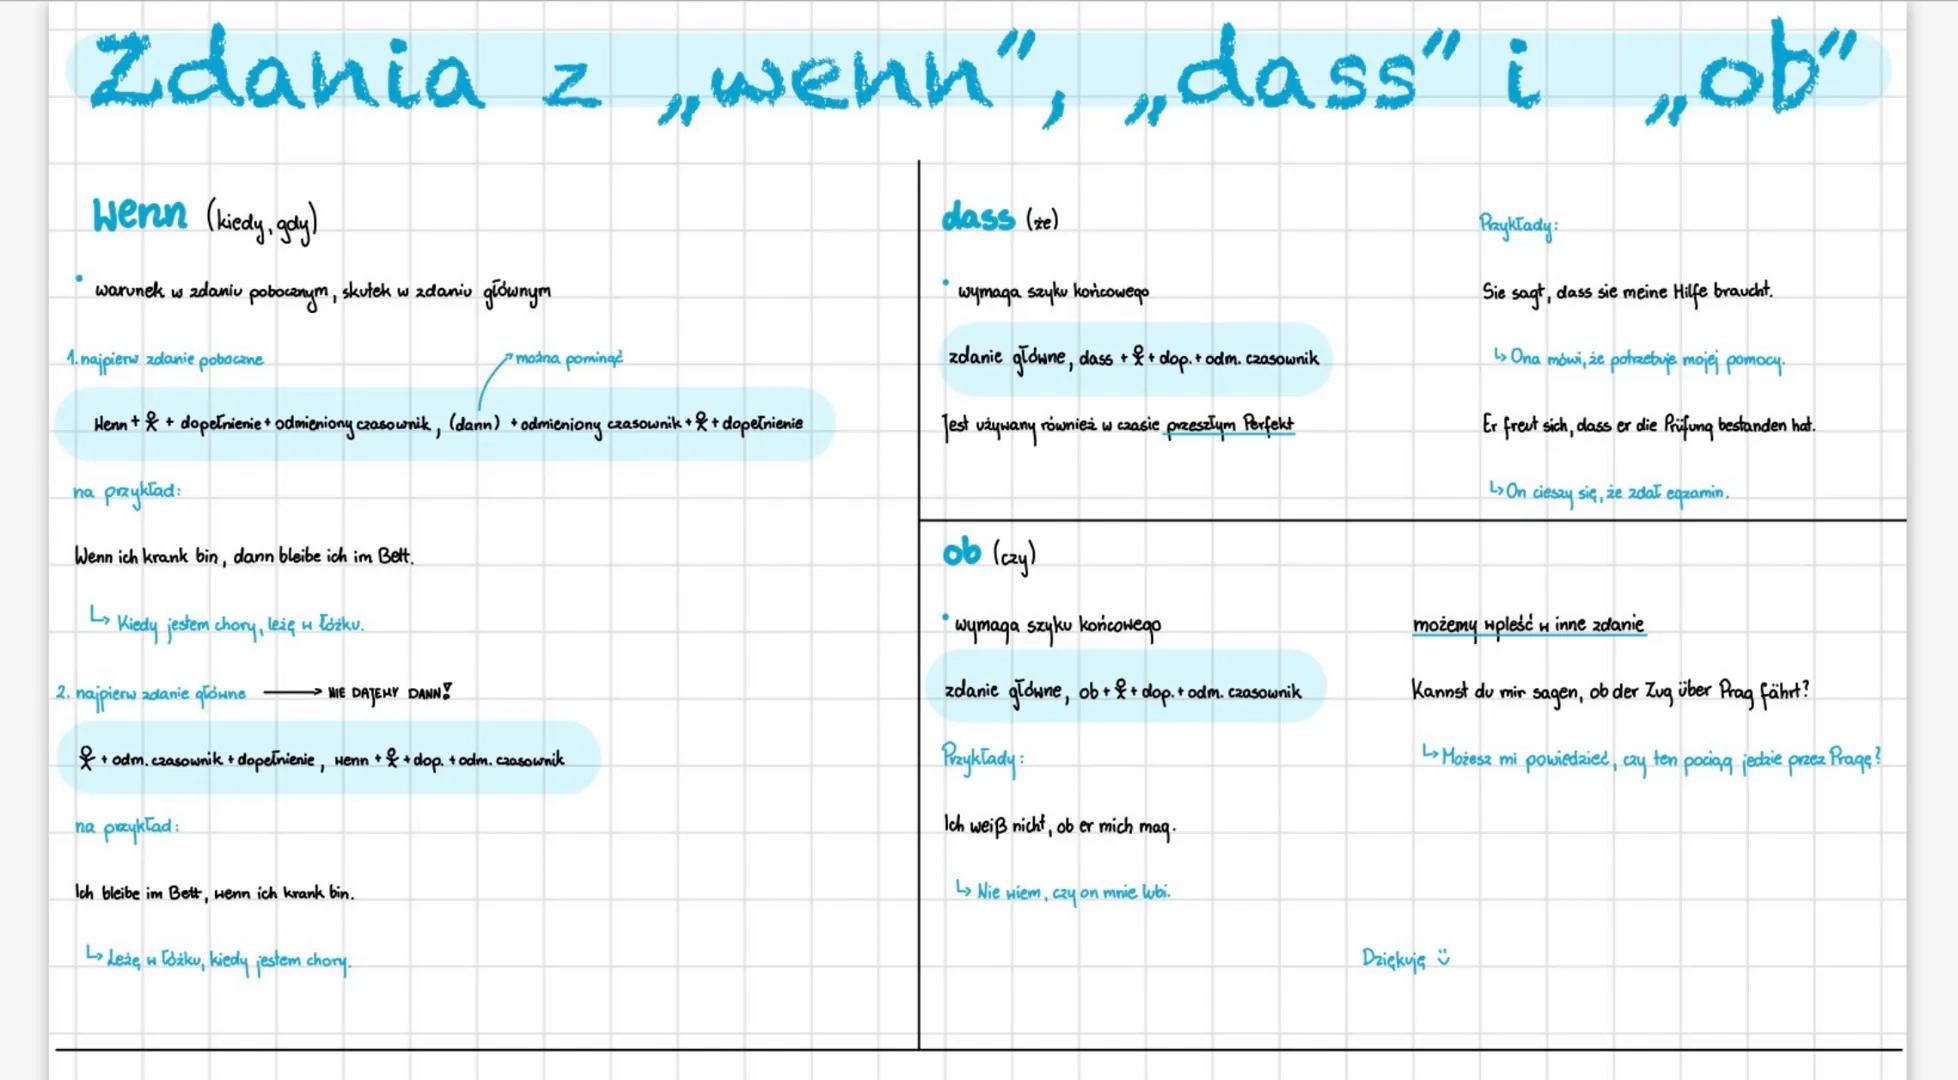 Zdania z „wenn”, „dass” i „ob”
Wenn (kiedy, gdy)
• warunek w zdaniu pobocznym, skutek w zdaniu głównym
1. najpierw zdanie poboczne
można pominąć
Wenn + + dopełnienie + odmieniony czasownik, (dann) + odmieniony czasownik + + dopełnienie
na przykład:
Wenn ich krank bin, dann bleibe ich im Bett.
↳ Kiedy jestem chory, leżę w łóżku.
2. najpierw zdanie główne → NIE DAJEMY DANN!
+ odm. czasownik + dopełnienie, wenn + + dop. + odm. czasownik
na przykład:
Ich bleibe im Bett, wenn ich krank bin.
↳ Leżę w łóżku, kiedy jestem chory.
dass (że)
• wymaga szyku końcowego
zdanie główne, dass + + dop. + odm. czasownik
Jest używany również w czasie przeszłym Perfekt
Przykłady:
Sie sagt, dass sie meine Hilfe braucht.
↳ Ona mówi, że potrzebuje mojej pomocy.
Er freut sich, dass er die Prüfung bestanden hat.
↳ On cieszy się, że zdał egzamin.
ob (czy)
• wymaga szyku końcowego
zdanie główne, ob + + dop. + odm. czasownik
Przykłady:
Ich weiß nicht, ob er mich mag.
↳ Nie wiem, czy on mnie lubi.
możemy wpleść w inne zdanie
Kannst du mir sagen, ob der Zug über Prag fährt?
↳ Możesz mi powiedzieć, czy ten pociąg jedzie przez Pragę?
Dziękuję